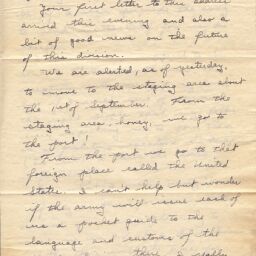 Your first letter to this address
arrived this evening and also a
bit of good news on the future
of this division.
We are alerted, as of yesterday,
to move to the staging area about
the 1st of September. From the
staging area, honey, we go to
the port!
From the port we go to that
foreign place called the United
States. I can't help but wonder
if the army will issue each of
us a pocket guide to the
language and customs of the
there. I really